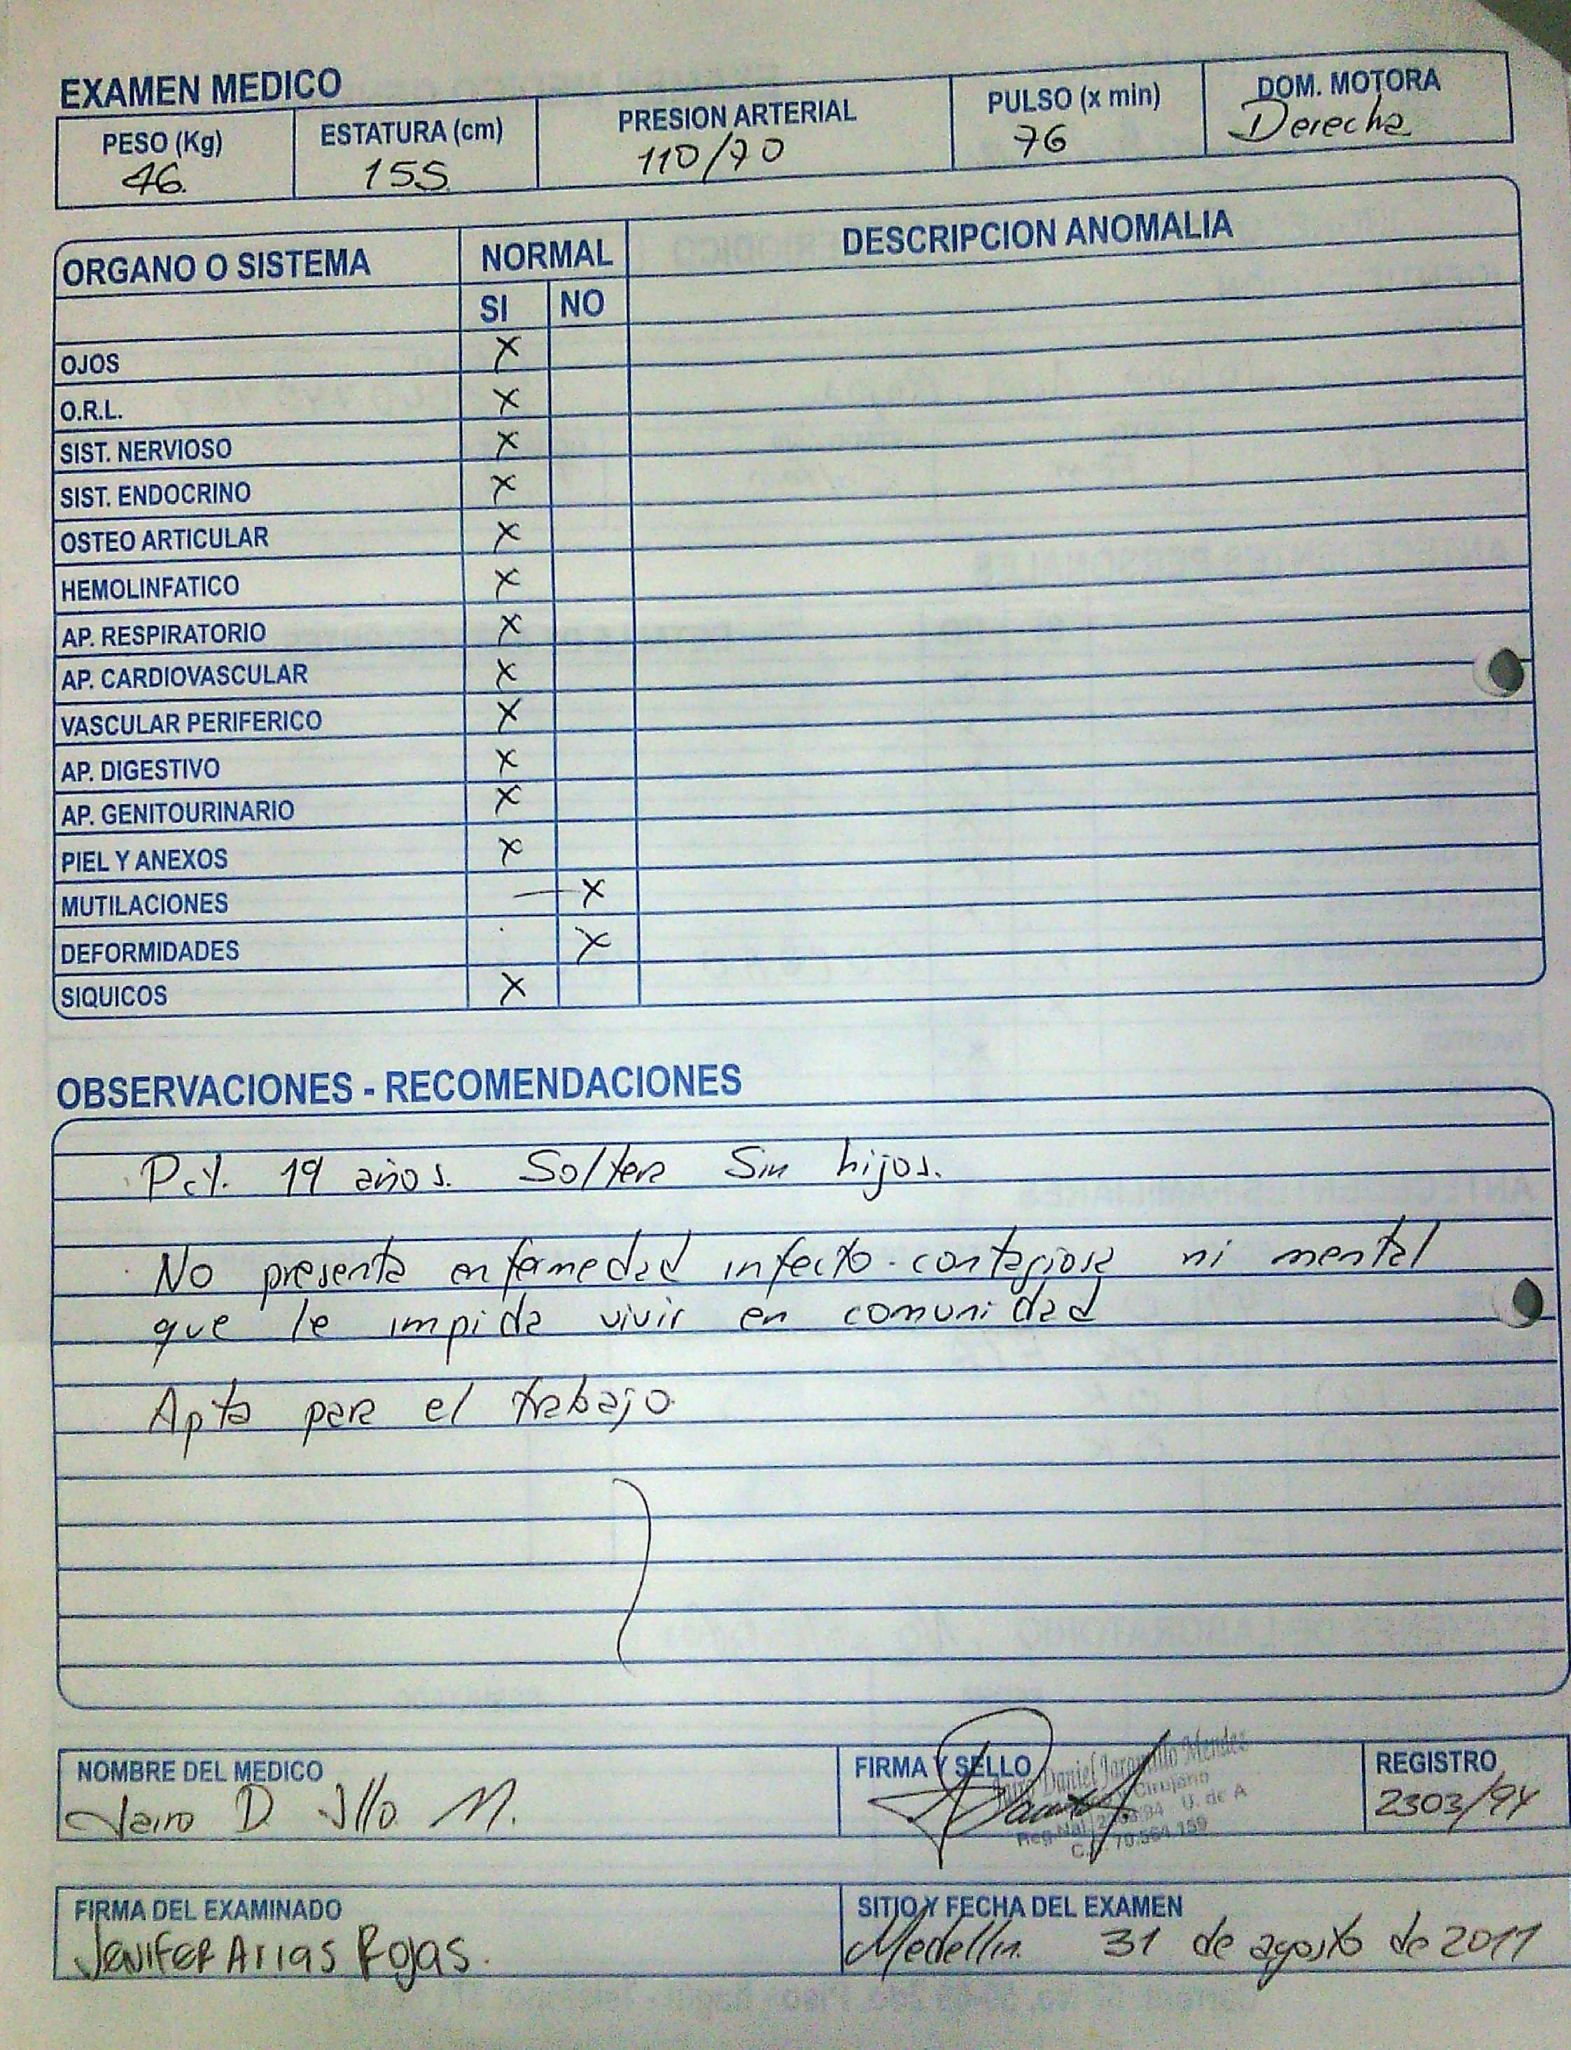 EXAMEN MEDICO
PESO (Kg) ESTATURA (cm) PRESION ARTERIAL PULSO (x min) DOM. MOTORA
46 155 110/70 76 Derecha
ORGANO O SISTEMA NORMAL DESCRIPCION ANOMALIA
SI NO
OJOS X
O.R.L. X
SIST. NERVIOSO X
SIST. ENDOCRINO X
OSTEO ARTICULAR X
HEMOLINFATICO X
AP. RESPIRATORIO X
AP. CARDIOVASCULAR X
VASCULAR PERIFERICO X
AP. DIGESTIVO X
AP. GENITOURINARIO X
PIEL Y ANEXOS X
MUTILACIONES — X
DEFORMIDADES X
SIQUICOS X
OBSERVACIONES - RECOMENDACIONES
19 años. Soltera Sin hijos.
No presenta enfermedad infecto-contagiosa ni mental
que le impida vivir en comunidad
Apta para el trabajo.
NOMBRE DEL MEDICO FIRMA Y SELLO REGISTRO
Jairo D. Jllo M. 2303/94
Jairo Daniel Jaramillo Mendez
y Cirujano
Reg. Nal. U. de A
C.C. 70.564.159
FIRMA DEL EXAMINADO SITIO Y FECHA DEL EXAMEN
Jenifer Arias Rojas. Medellin. 31 de agosto de 2011